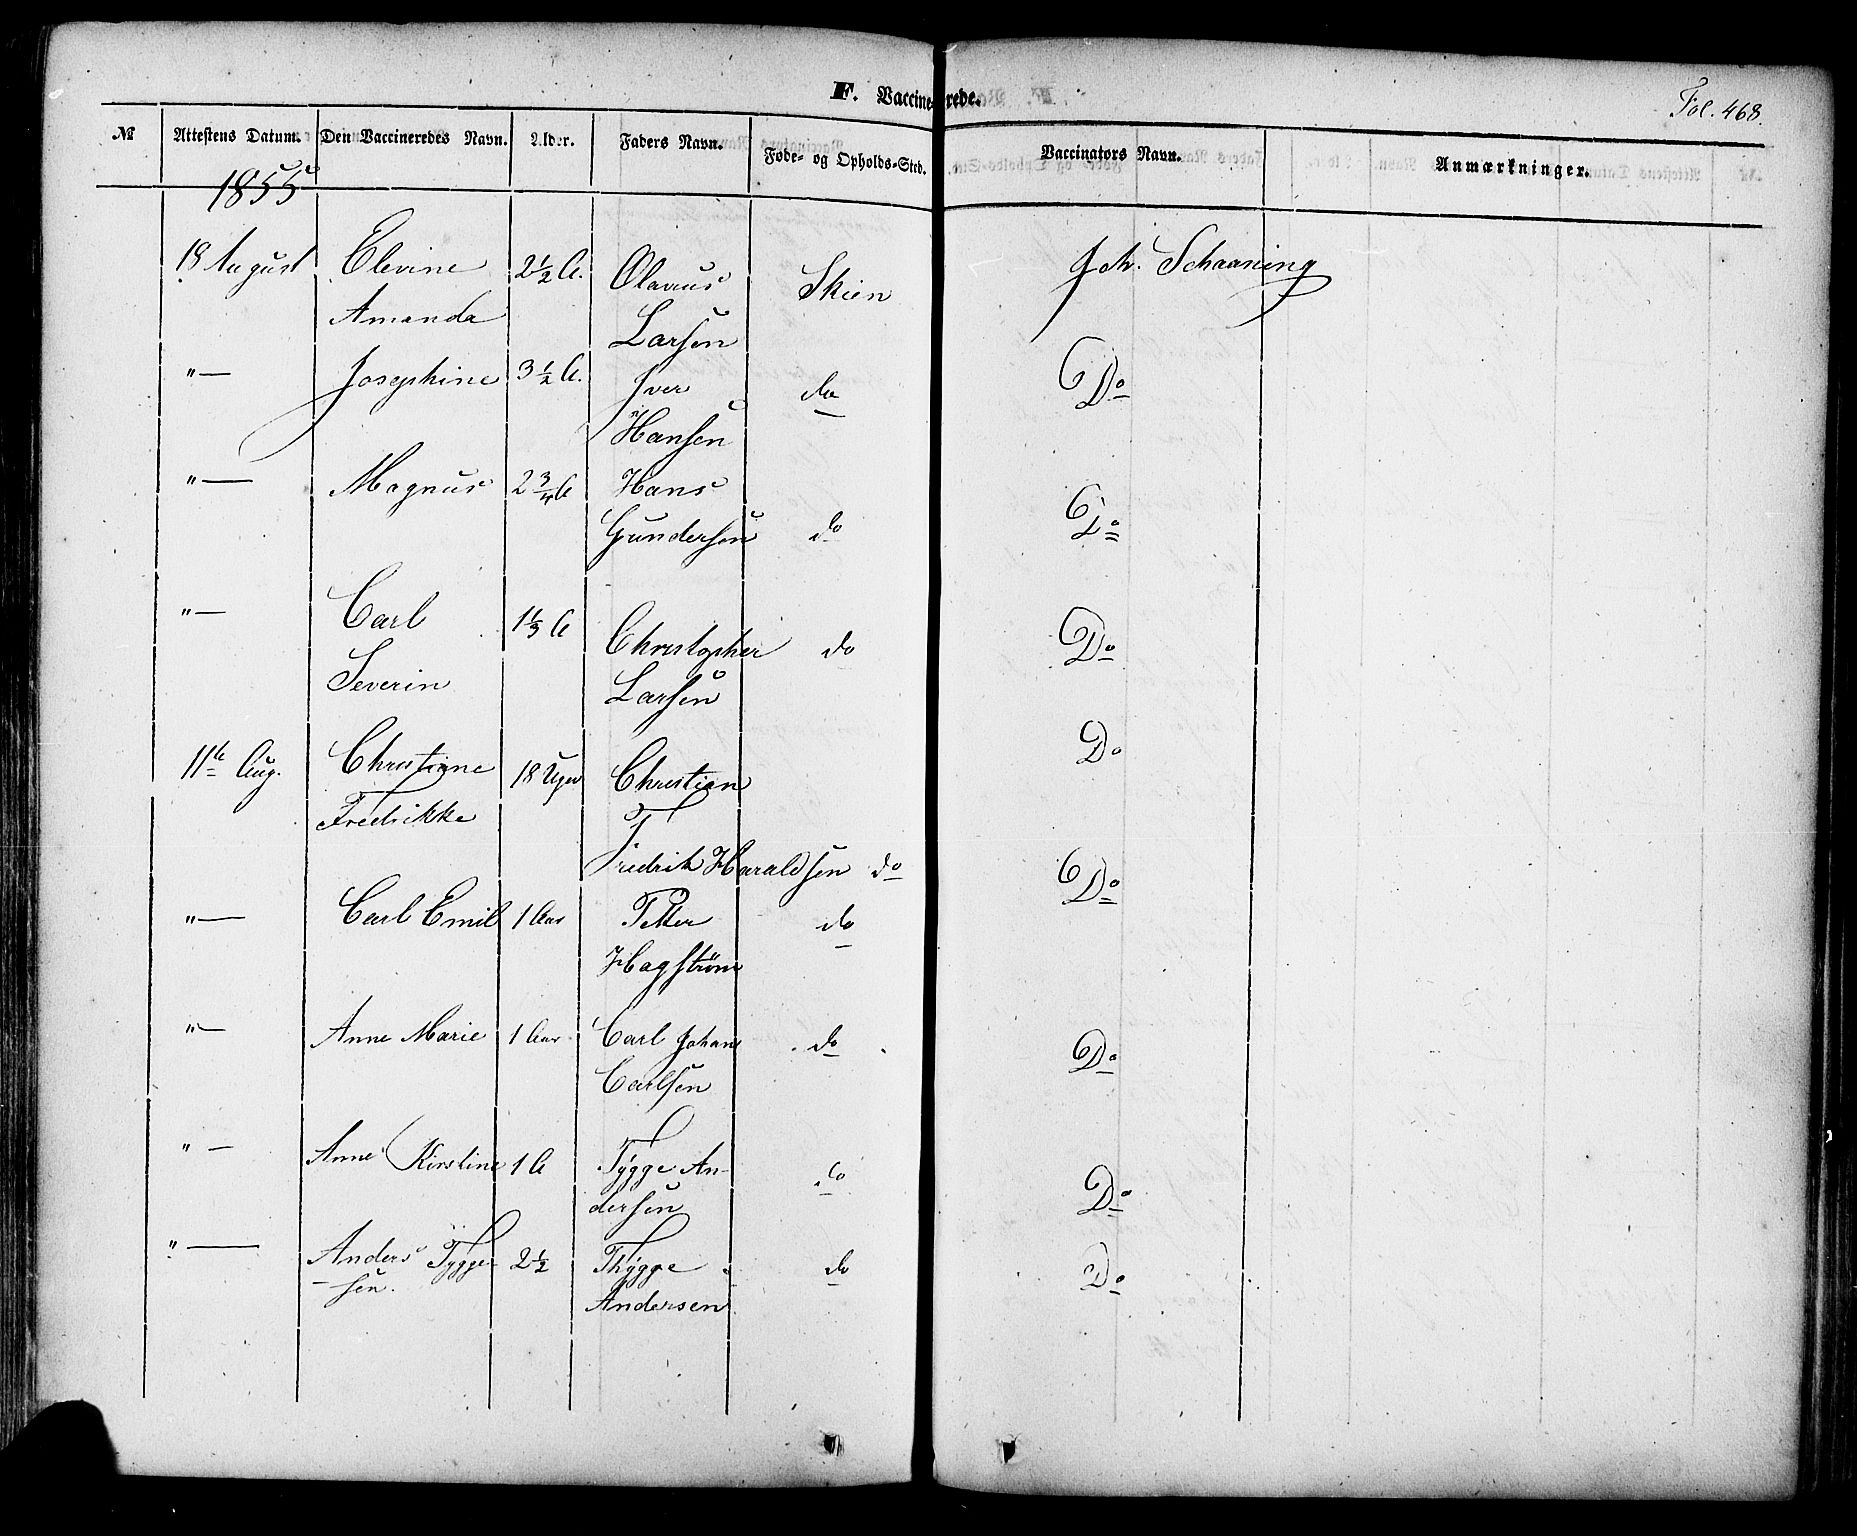 F. Vaccinerede.
Fol. 468.
№ Attestens Datum. Den Vaccineredes Navn. Alder. Faders Navn. Føde- og Opholds-Sted. Vaccinators Navn. Anmærkninger.
1855
18 August Elevine 2½ A. Olavus Skien Joh. Schaaning
Amanda Larsen
"— Josephine 3½ A. Iver do Do
Hansen
"— Magnus 2¾ A Hans
Gundersen do Do
"— Carl 1⅓ A Christopher do Do
Severin Larsen
11te Aug. Christiane 18 Uger Christian Do
Fredrikke
Fredrik Haraldsen do
"— Carl Emil 1 Aar Petter do Do
Hagstrøm
"— Anne Marie 1 Aar Carl Johan do Do
Carlsen
"— Anne Kirstine 1 A Tygge An- do Do
dersen
"— Anders Tygge- 2½ Thygge do Do
-sen. Andersen